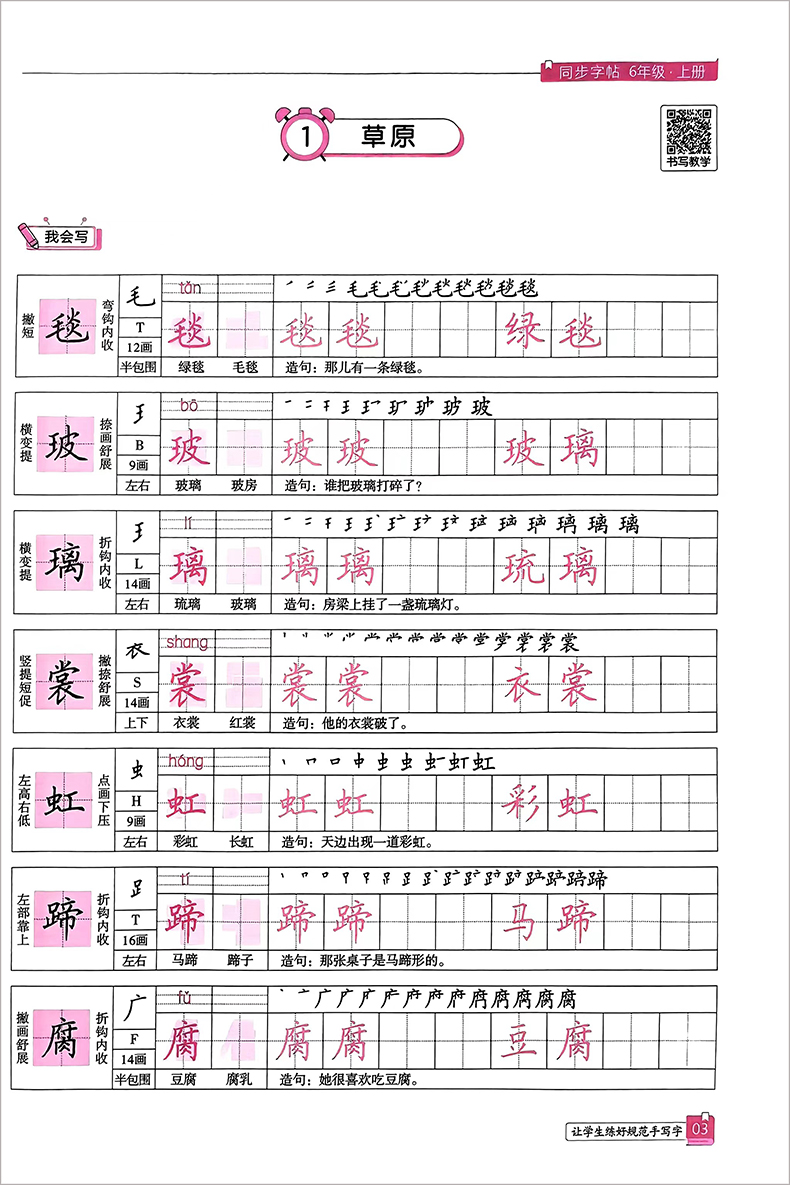 同步字帖 6年级·上册
1 草原
书写教学
我会写
撇短 毯 弯钩内收 毛 tǎn
T 毯 毯 毯 绿 毯
12画
半包围 绿毯 毛毯 造句：那儿有一条绿毯。
横变提 玻 捺画舒展 王 bō
B 玻 玻 玻 玻 璃
9画
左右 玻璃 玻房 造句：谁把玻璃打碎了？
横变提 璃 折钩内收 王 lí
L 璃 璃 璃 琉 璃
14画
左右 琉璃 玻璃 造句：房梁上挂了一盏琉璃灯。
竖提短促 裳 撇捺舒展 衣 shang
S 裳 裳 裳 衣 裳
14画
上下 衣裳 红裳 造句：他的衣裳破了。
左高右低 虹 点画下压 虫 hóng
H 虹 虹 虹 彩 虹
9画
左右 彩虹 长虹 造句：天边出现一道彩虹。
左部靠上 蹄 折钩内收 𧾷 tí
T 蹄 蹄 蹄 马 蹄
16画
左右 马蹄 蹄子 造句：那张桌子是马蹄形的。
撇画舒展 腐 折钩内收 广 fǔ
F 腐 腐 腐 豆 腐
14画
半包围 豆腐 腐乳 造句：她很喜欢吃豆腐。
让学生练好规范手写字 03